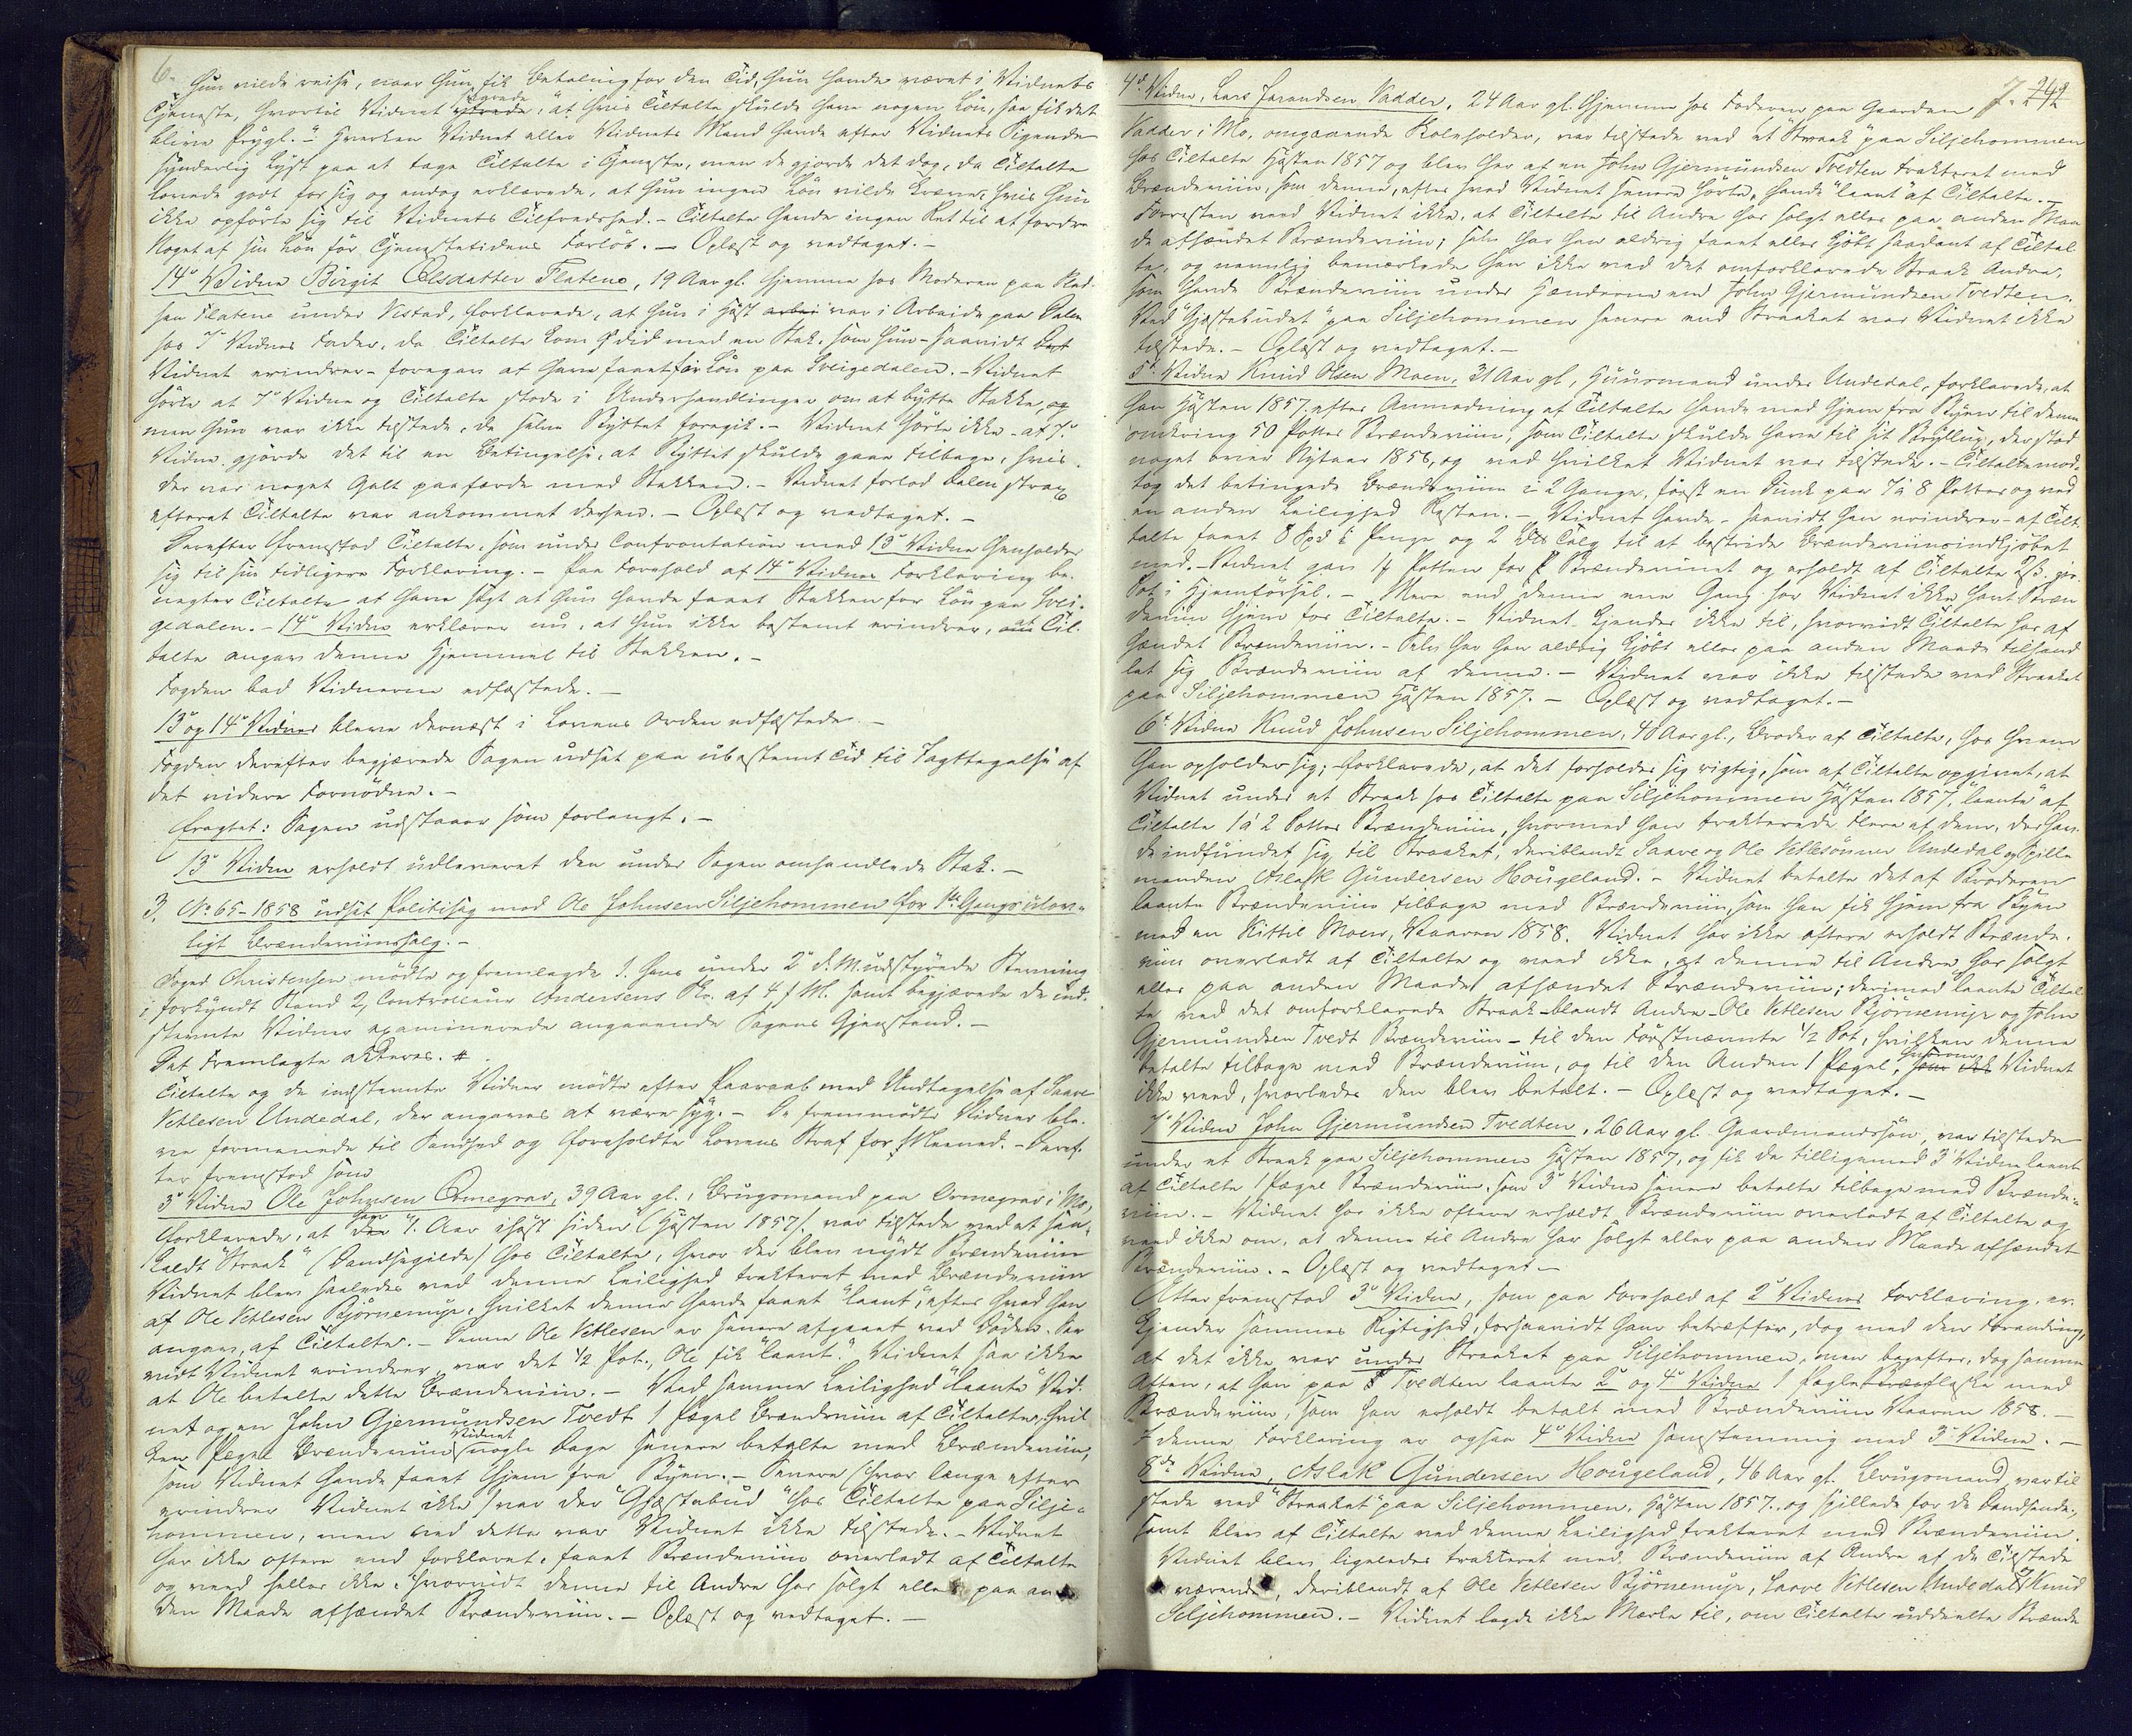 6.
hun vilde reise, naar hun fik Betaling for den Tid, hun havde været i Vidnets
Tjeneste, hvortil Vidnet svarede, "at hvis Tiltalte skulde have nogen Løn, saa fik det
blive Prygl." - Hverken Vidnet eller Vidnets Mand havde efter Vidnets Sigende
synderlig Lyst paa at tage Tiltalte i Tjeneste, men de gjorde det dog, da Tiltalte
lovede godt for sig og endog erklærede, at hun ingen Løn vilde kræve, hvis hun
ikke opførte sig til Vidnets Tilfredshed. - Tiltalte havde ingen Ret til at fordre
Noget af sin Løn før Tjenestetidens Forløb. - Oplæst og vedtaget. -
14de Vidne Birgit Olsdatter Flatene, 19 Aar gl. hjemme hos Moderen paa Plad-
sen Flatene under Vistad, forklarede, at hun i Høst var i Arbeide paa Dalen
hos 7de Vidnes Fader, da Tiltalte kom did med en Stak, som hun - saavidt
Vidnet erindrer - foregav at have faaet for Løn paa Sveigedalen. - Vidnet
hørte at 7de Vidne og Tiltalte stode i Underhandlinger om at bytte Stakke,
men hun var ikke tilstede, da selve Byttet foregik. - Vidnet hørte ikke - at 7de
Vidne gjorde det til en Betingelse, at Byttet skulde gaae tilbage, hvis
der var noget Galt paafærde med Stakken. - Vidnet forlod Dalen strax
efterat Tiltalte var ankommet dersen. - Oplæst og vedtaget. -
Derefter fremstod Tiltalte, som under Confrontation med 13de Vidne henholder
sig til sin tidligere Forklaring. - Paa Forehold af 14de Vidnes Forklaring be-
negter Tiltalte at have sagt at hun havde faaet Stakken for Løn paa Svei-
gedalen. - 14de Vidne erklærer nu, at hun ikke bestemt erindrer, at Til-
talte angav denne Hjemmel til Stakken. -
Fogden bad Vidnerne edfæstede. -
13de og 14de Vidner bleve dernæst i Lovens Orden edfæstede. -
Fogden derefter begjærede Sagen udsat paa ubestemt Tid til Iagttagelse af
det videre Fornødne. -
Eragtet: Sagen udstaaer som forlangt. -
13de Vidne erholdt udleveret den under Sagen omhandlede Stak. -
3. No 65-1858 udsat Politisag mod Ole Johnsen Siljehommen for 1ste Gangs ulov-
ligt Brændeviinssalg. -
Foged Christensen mødte og fremlagde 1, hans under 2de d. M. udstyrede Stevning
i forkyndt Stand 2, Controlleur Andersens Skr. af 4 f. M. samt begjærede de ind-
stevnte Vidner examinerede angaaende Sagens Gjenstand. -
Det Fremlagte akteres. #
Tiltalte og de indstevnte Vidner mødte efter Paaraab med Undtagelse af Saave
Vetlesen Undedal, der angaves at være syg. - De fremmødte Vidner ble-
ve formanede til Sandhed og foreholdte Lovens Straf for Meened. - Deref-
ter fremstod som
3de Vidne Ole Johnsen Ormegrav, 39 Aar gl., Brugsmand paa Ormegrav i Mo,
forklarede, at han 1 Aar ihøst siden (Høsten 1857) var tilstede ved et saa-
kaldt "Straak" (Dandsegilde) hos Tiltalte, hvor der blev nydt Brændeviin
Vidnet blev saaledes ved denne Leilighed trakteret med Brændeviin
af Ole Vetlesen Bjørnemyr, hvilket denne havde faaet "laant", efter hvad han
angav, af Tiltalte. - Denne Ole Vetlesen er senere afgaaet ved Døden. Saa-
vidt Vidnet erindrer, var det 1/2 Pot., Ole fik "laant". Vidnet saa ikke
at Ole betalte dette Brændeviin. - Ved samme Leilighed "laante" Vid-
net og en John Gjermundsen Tvedt 1 Pægel Brændeviin af Tiltalte, hvil-
ken Pægel Brændeviin Vidnet nogle Dage senere betalte med Brændeviin,
som Vidnet havde faaet hjem fra Byen. - Senere (hvor længe efter
erindrer Vidnet ikke) var der "Gjæstebud" hos Tiltalte paa Silje-
hommen, men ved dette var Vidnet ikke tilstede. - Vidnet
har ikke oftere end forklaret, faaet Brændeviin overladt af Tiltalte
og veed heller ikke, hvorvidt denne til Andre har solgt eller paa an-
den Maade afhændet Brændeviin. - Oplæst og vedtaget. -
7. 242
4de Vidne, Lars Jarandsen Vadder, 24 Aar gl. hjemme hos Faderen paa Gaarden
Vadder i Mo, omgaaende Skoleholder, var tilstede ved et "Straak" paa Siljehommen
hos Tiltalte Høsten 1857 og blev her af en John Gjermundsen Tvedten trakteret med
Brændeviin, som denne, efter hvad Vidnet senere hørte, havde "laant" af Tiltalte. -
Forresten veed Vidnet ikke, at Tiltalte til Andre har solgt eller paa anden Maa-
de afhændet Brændeviin; selv har han aldrig faaet eller kjøbt saadant af Tiltal-
te, og nemlig bemærkede han ikke ved det omforklarede Straak Andre,
som havde Brændeviin under Hænderne end John Gjermundsen Tvedten.
Ved "Gjæstebudet" paa Siljehommen senere end Straaket var Vidnet ikke
tilstede. - Oplæst og vedtaget. -
5te Vidne Knud Olsen Moen, 31 Aar gl, Huusmand under Undedal, forklarede, at
han Høsten 1857 efter Anmodning af Tiltalte havde med hjem fra Byen til denne
omkring 50 Potter Brændeviin, som Tiltalte skulde have til sit Bryllup, der stod
noget over Nytaar 1858, og ved hvilket Vidnet var tilstede. - Tiltalte mod-
tog det betingede Brændeviin i 2 Gange, først en Dunk paa 7 à 8 Potter og ved
en anden Leilighed Resten. - Vidnet havde - saavidt han erindrer - af Til-
talte faaet 8 Spd i Penge og 2 Talg til at bestride Brændeviinsindkjøbet
med. - Vidnet gav Potten for Brændeviinet og erholdt af Tiltalte pr.
Pot i Hjemførsel. - Mere end denne ene Gang har Vidnet ikke havt Bræn-
deviin hjem for Tiltalte. - Vidnet kjender ikke til, hvorvidt Tiltalte har af-
hændet Brændeviin. - Selv har han aldrig kjøbt eller paa anden Maade tilhand-
let sig Brændeviin af denne. - Vidnet var ikke tilstede ved Straaket
paa Siljehommen Høsten 1857. - Oplæst og vedtaget. -
6te Vidne Knud Johnsen Siljehommen, 40 Aar gl., Broder af Tiltalte, hos hvem
han opholder sig; forklarede, at det forholder sig rigtig, som af Tiltalte opgivet, at
Vidnet under et Straak hos Tiltalte paa Siljehommen Høsten 1857, "laante" af
Tiltalte 1 à 2 Potter Brændeviin, hvormed han trakterede Flere af dem, der hav-
de indfundet sig til Straaket, deriblandt Saave og Ole Vetlesønner Undedal og Spille-
manden Aslak Gundersen Hougeland. - Vidnet betalte det af Broderen
laante Brændeviin tilbage med Brændeviin, som han fik hjem fra Byen
med en Kittil Moen, Vaaren 1858. Vidnet har ikke oftere erholdt Brænde-
viin overladt af Tiltalte og veed ikke, at denne til Andre har solgt
eller paa anden Maade afhændet Brændeviin; derimod laante Tiltal-
te ved det omforklarede Straak - blandt Andre - Ole Vetlesen Bjørnemyr og John
Gjermundsen Tvedt Brændeviin - til den Førstnævnte 1/2 Pot, hvilken denne
betalte tilbage med Brændeviin, og til den Anden 1 Pægel, Vidnet
ikke veed, hvorledes den blev betalt. - Oplæst og vedtaget. -
7de Vidne John Gjermundsen Tvedten, 26 Aar gl. Gaardmandssøn, var tilstede
under et Straak paa Siljehommen Høsten 1857, og fik da tilligemed 3de Vidne laant
af Tiltalte 1 Pægel Brændeviin, som 3de Vidne senere betalte tilbage med Brænde-
viin. - Vidnet har ikke oftere erholdt Brændeviin overladt af Tiltalte og
veed ikke om, at denne til Andre har solgt eller paa anden Maade afhændet
Brændeviin. - Oplæst og vedtaget -
Atter fremstod 3de Vidne, som paa Forehold af 2de Vidnes Forklaring er-
kjender sammes Rigtighed, forsaavidt ham betræffer, dog med den Forandring,
at det ikke var under Straaket paa Siljehommen, men bagefter, dog samme
Aften, at han paa Tvedten laante 2de og 4de Vidne 1 Pægleflaske med
Brændeviin, som han erholdt betalt med Brændeviin Vaaren 1858. -
I denne Forklaring er ogsaa 4de Vidne samstemmig med 3de Vidne. -
8de Vidne, Aslak Gundersen Hougeland, 46 Aar gl. Brugsmand, var til-
stede ved "Straaket" paa Siljehommen, Høsten 1857, og spillede for de Dandsende,
samt blev af Tiltalte ved denne Leilighed trakteret med Brændeviin.
Vidnet blev ligeledes trakteret med Brændeviin af Andre af de Tilstede-
værende, deriblandt af Ole Vetlesen Bjørnemyr, Saave Vetlesen Undedal og Knud
Siljehommen. - Vidnet lagde ikke Mærke til, om Tiltalte uddeelte Brænde